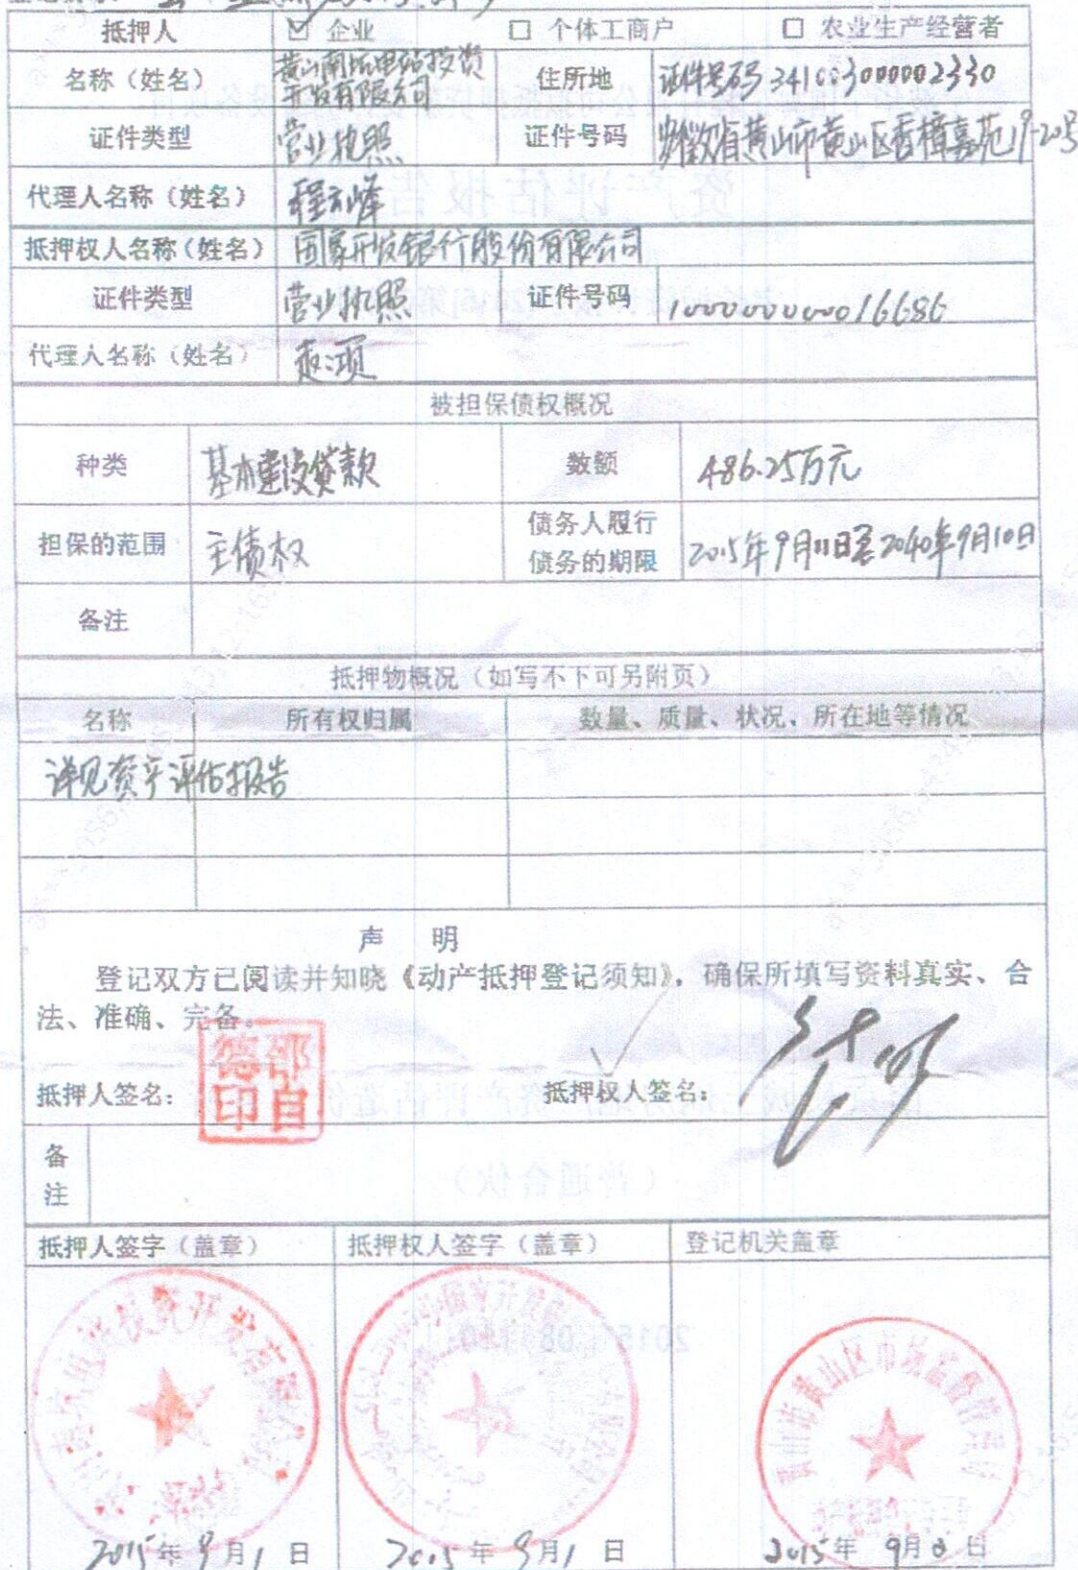 抵押人 ☑ 企业 □ 个体工商户 □ 农业生产经营者
名称（姓名） 住所地 证件号码 341003000002330
开发有限公司
证件类型 营业执照 证件号码 安徽省黄山市黄山区香樟嘉苑19-20号
代理人名称（姓名） 程云峰
抵押权人名称（姓名） 国家开发银行股份有限公司
证件类型 营业执照 证件号码 100000000016686
代理人名称（姓名）
被担保债权概况
种类 基本建设贷款 数额 486.25万元
担保的范围 主债权 债务人履行
债务的期限 2015年9月11日至2040年9月10日
备注
抵押物概况（如写不下可另附页）
名称 所有权归属 数量、质量、状况、所在地等情况
详见资产评估报告
声 明
登记双方已阅读并知晓《动产抵押登记须知》，确保所填写资料真实、合
法、准确、完备。
抵押人签名： 德邵印自 抵押权人签名：
备
注
抵押人签字（盖章） 抵押权人签字（盖章） 登记机关盖章
黄山市黄山区市场监督管理局
2015年9月1日 2015年9月1日 2015年9月 日